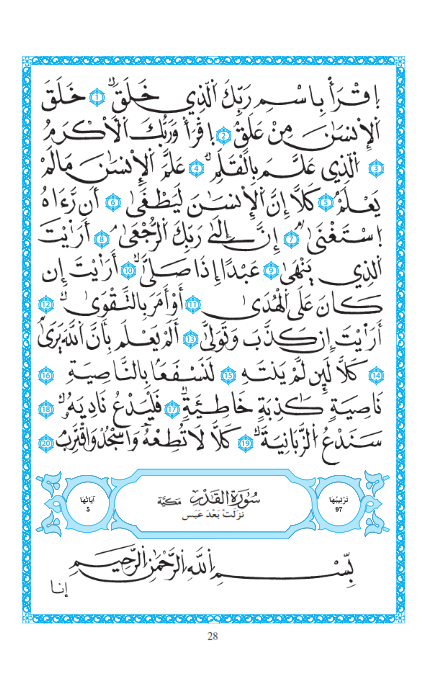 اِقْرَأْ بِاسْمِ رَبِّكَ اَلَّذِي خَلَقَ 1 خَلَقَ
اَلْإِنسَٰنَ مِنْ عَلَقٍ 2 اِقْرَأْ وَرَبُّكَ اَلْأَكْرَمُ
3 اَلَّذِي عَلَّمَ بِالْقَلَمِ 4 عَلَّمَ اَلْإِنسَٰنَ مَا لَمْ
يَعْلَمْ 5 كَلَّا إِنَّ اَلْإِنسَٰنَ لَيَطْغَىٰ 6 أَن رَّءَاهُ
اُسْتَغْنَىٰ 7 إِنَّ إِلَىٰ رَبِّكَ اَلرُّجْعَىٰ 8 أَرَٰيْتَ
اَلَّذِي يَنْهَىٰ 9 عَبْدًا إِذَا صَلَّىٰ 10 أَرَٰيْتَ إِن
كَانَ عَلَى اَلْهُدَىٰ 11 أَوْ أَمَرَ بِالتَّقْوَىٰ 12
أَرَٰيْتَ إِن كَذَّبَ وَتَوَلَّىٰ 13 أَلَمْ يَعْلَم بِأَنَّ اَللَّهَ يَرَىٰ
14 كَلَّا لَئِن لَّمْ يَنتَهِ 15 لَنَسْفَعًا بِالنَّاصِيَةِ 16
نَاصِيَةٍ كَٰذِبَةٍ خَاطِئَةٍ 17 فَلْيَدْعُ نَادِيَهُۥ 18
سَنَدْعُ اُلزَّبَانِيَةَ 19 كَلَّا لَا تُطِعْهُ وَاسْجُدْ وَاقْتَرِب 20
سُورَةُ اَلْقَدْرِ مَكِّيَّة
نَزَلَتْ بَعْدَ عَبَسَ
تَرْتِيبُهَا 97
آيَاتُهَا 5
بِسْمِ اِللَّهِ اِلرَّحْمَٰنِ اِلرَّحِيمِ
إِنَّا
28